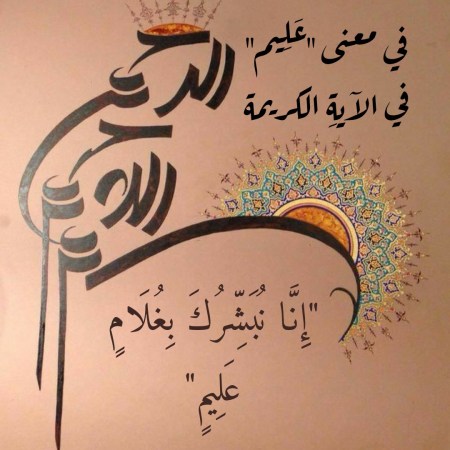 في معنى "عَلِيم"
في الآيةِ الكريمة
الرحمن
الرحيم
"إِنَّا نُبَشِّرُكَ بِغُلَامٍ
عَلِيمٍ"